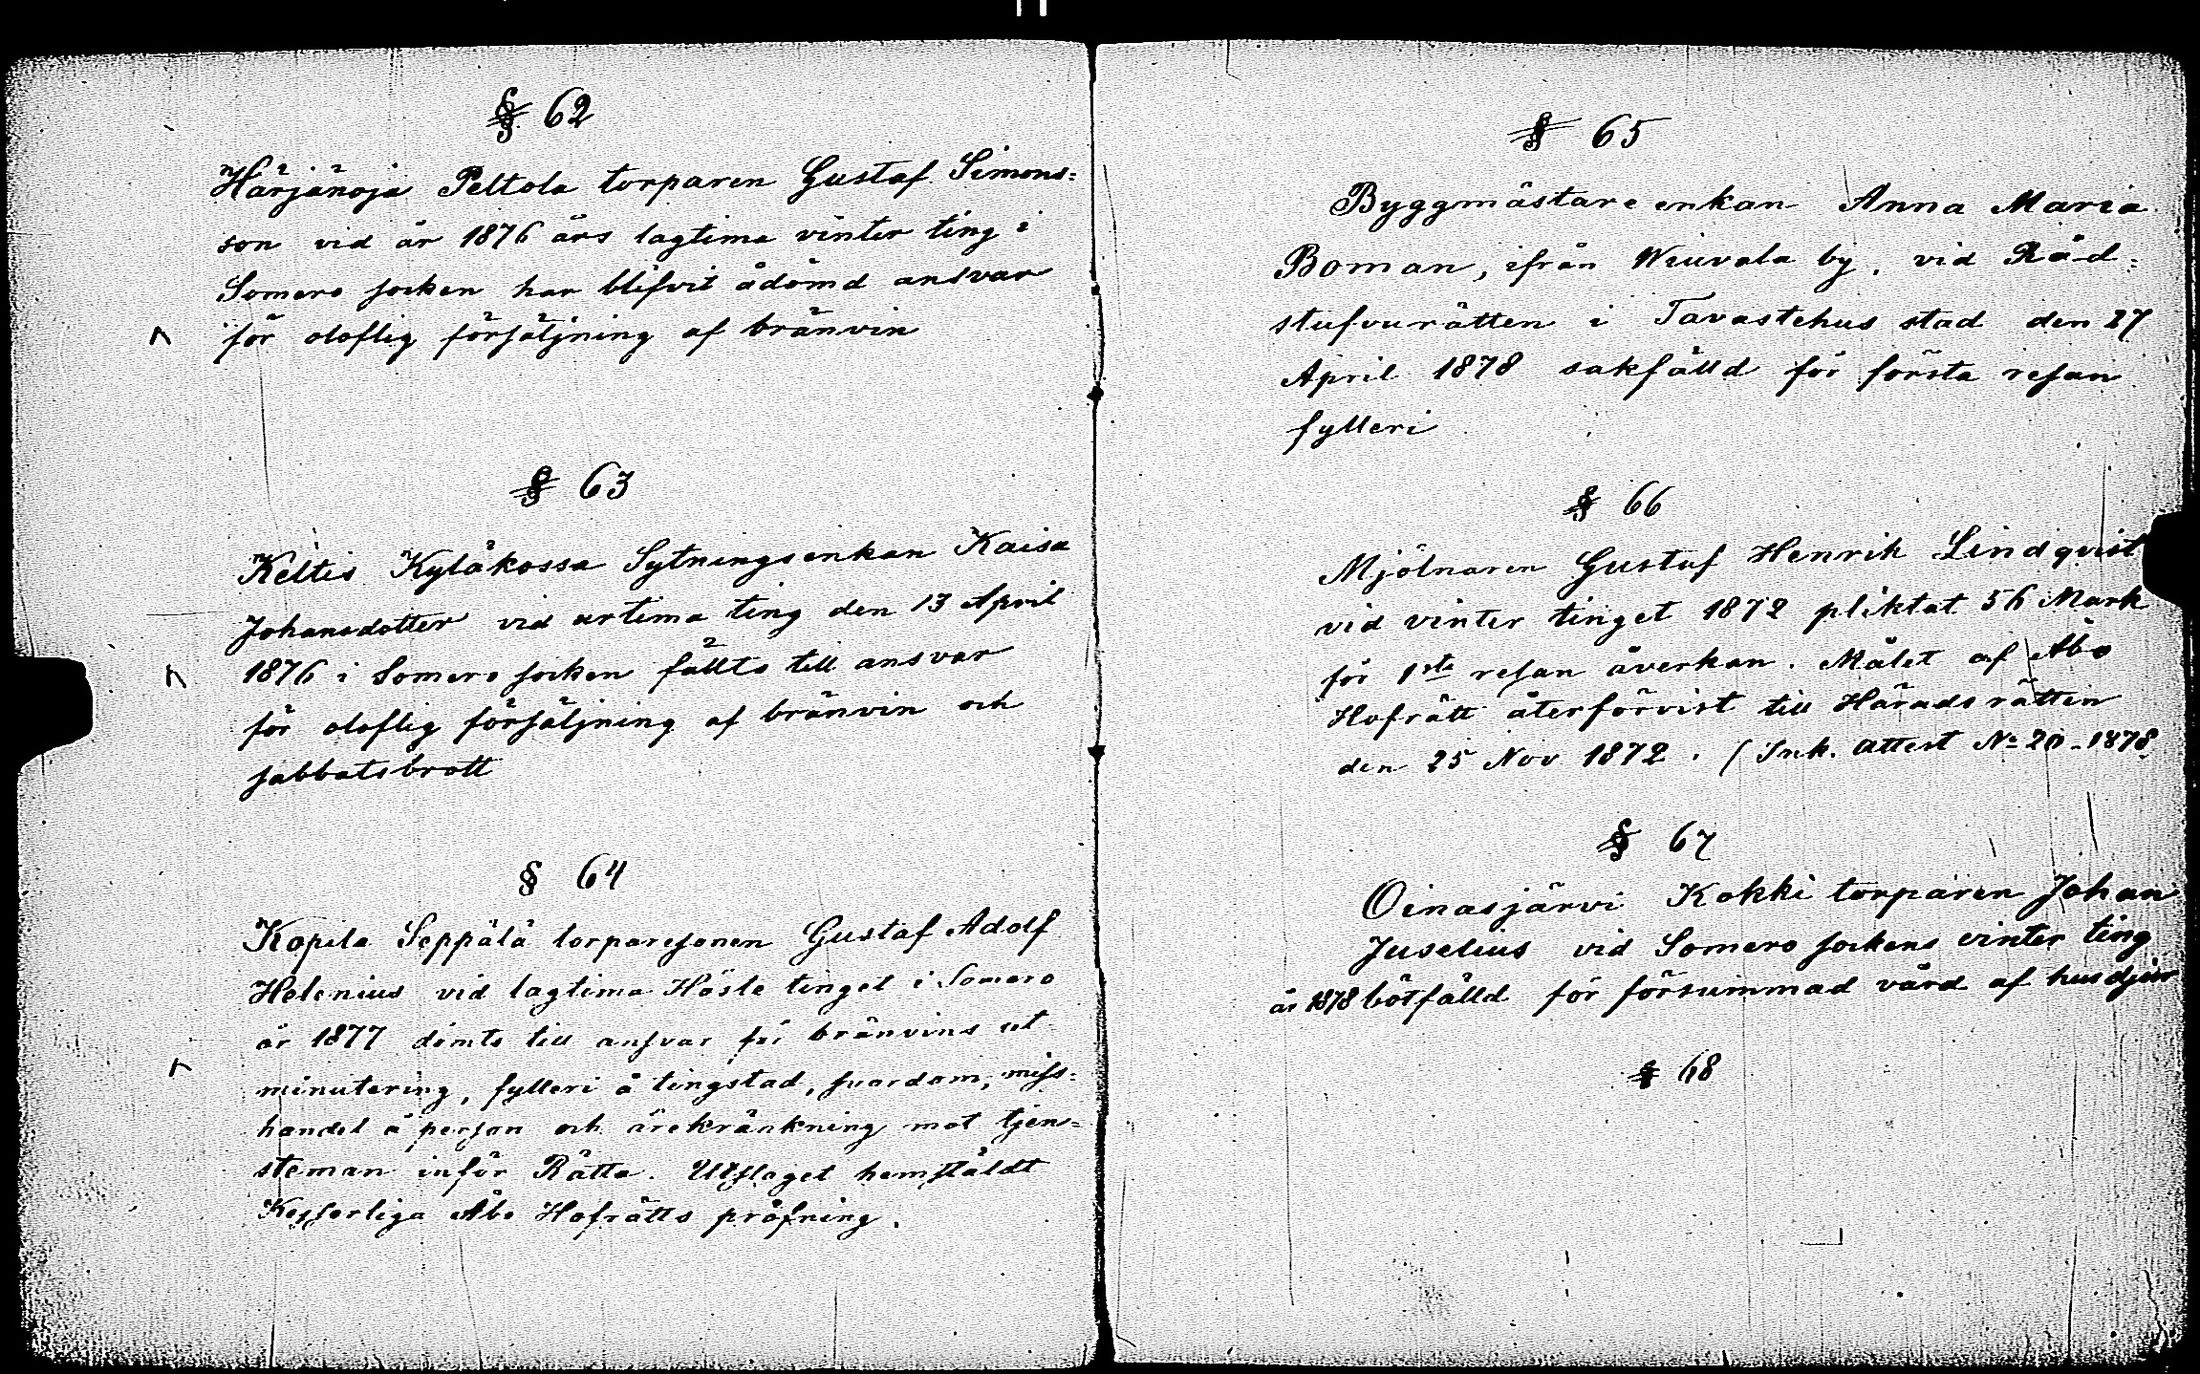 § 62
Härjänoja Peltola torparen Gustaf Simons=
son vid år 1876 års lagtima vinter ting i
Somero socken har blifvit ådömd ansvar
för oloflig försäljning af bränvin
§ 63
Keltis Kyläkossa Sytningsenkan Kaisa
Johansdotter vid urtima ting den 13 April
1876 i Somero socken fällts till ansvar
för oloflig försäljning af bränvin och
sabbatsbrott
§ 64
Kopila Seppälä torparesonen Gustaf Adolf
Helenius vid lagtima Höste tinget i Somero
år 1877 dömts till ansvar för bränvins ut
minutering, fylleri å tingstad, svordom, miss=
handel å person och ärekränkning mot tjen=
steman inför Rätta. Utslaget hemstäldt
Kejserliga Åbo Hofrätts pröfning.
§ 65
Byggmästare enkan Anna Maria
Boman, ifrån Wiuvala by, vid Råd=
stufvurätten i Tavastehus stad den 27
April 1878 sakfälld för första resan
fylleri
§ 66
Mjölnaren Gustaf Henrik Lindqvist
vid vinter tinget 1872 pliktat 56 Mark
för 1sta resan åverkan. Målet af Åbo
Hofrätt återförvist till Häradsrätten
den 25 Nov 1872. (Ink. attest No 20-1878
§ 67
Oinasjärvi Kokki torparen Johan
Juselius vid Somero sockens vinter ting
år 1878 bötfälld för försummad vård af husdjur
§ 68